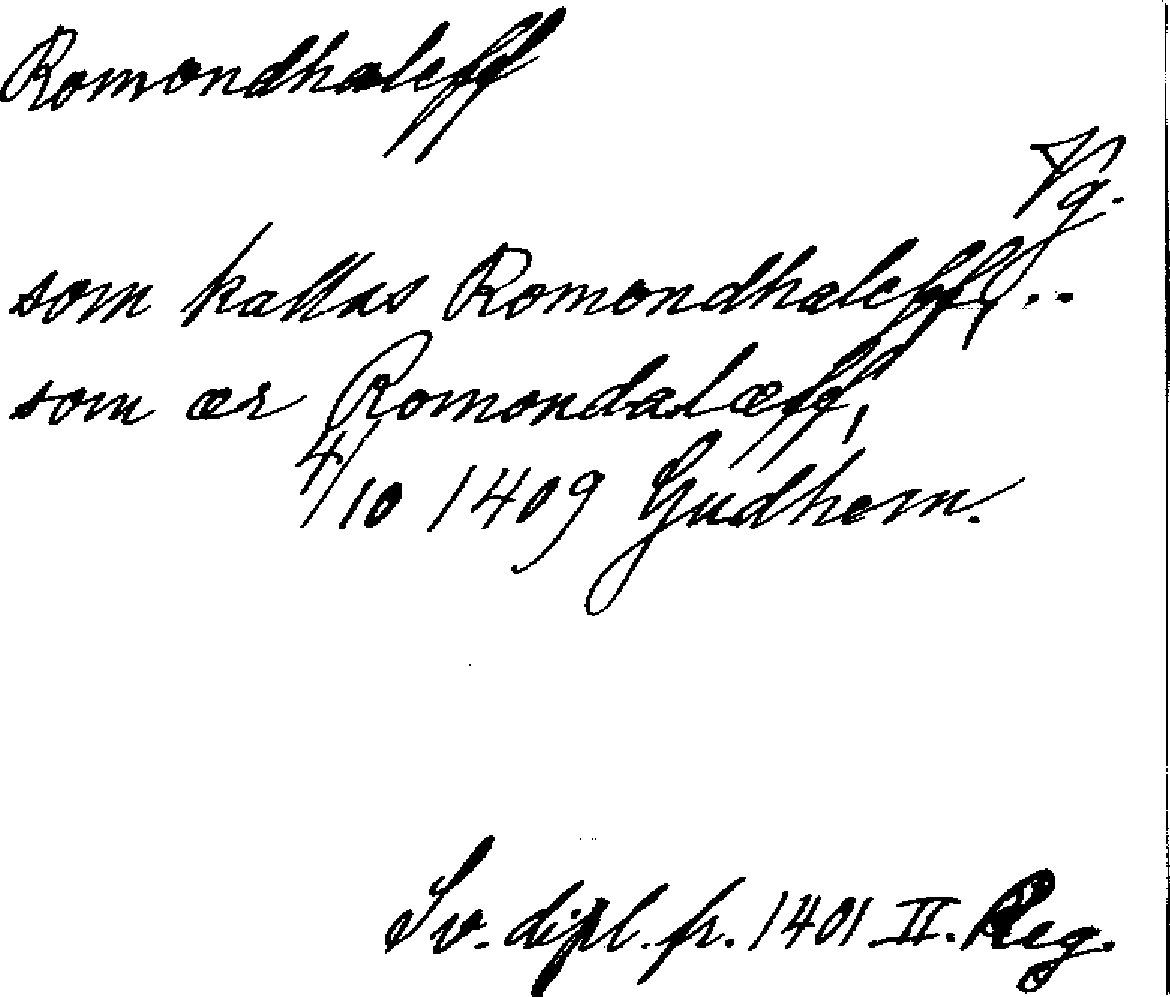 Romondhaleff
Vg.
som kallas Romondhaleff, ..
som ær Romondalæff,
4/10 1409 Gudhem.
Sv. dipl. fr. 1401 II. Reg.